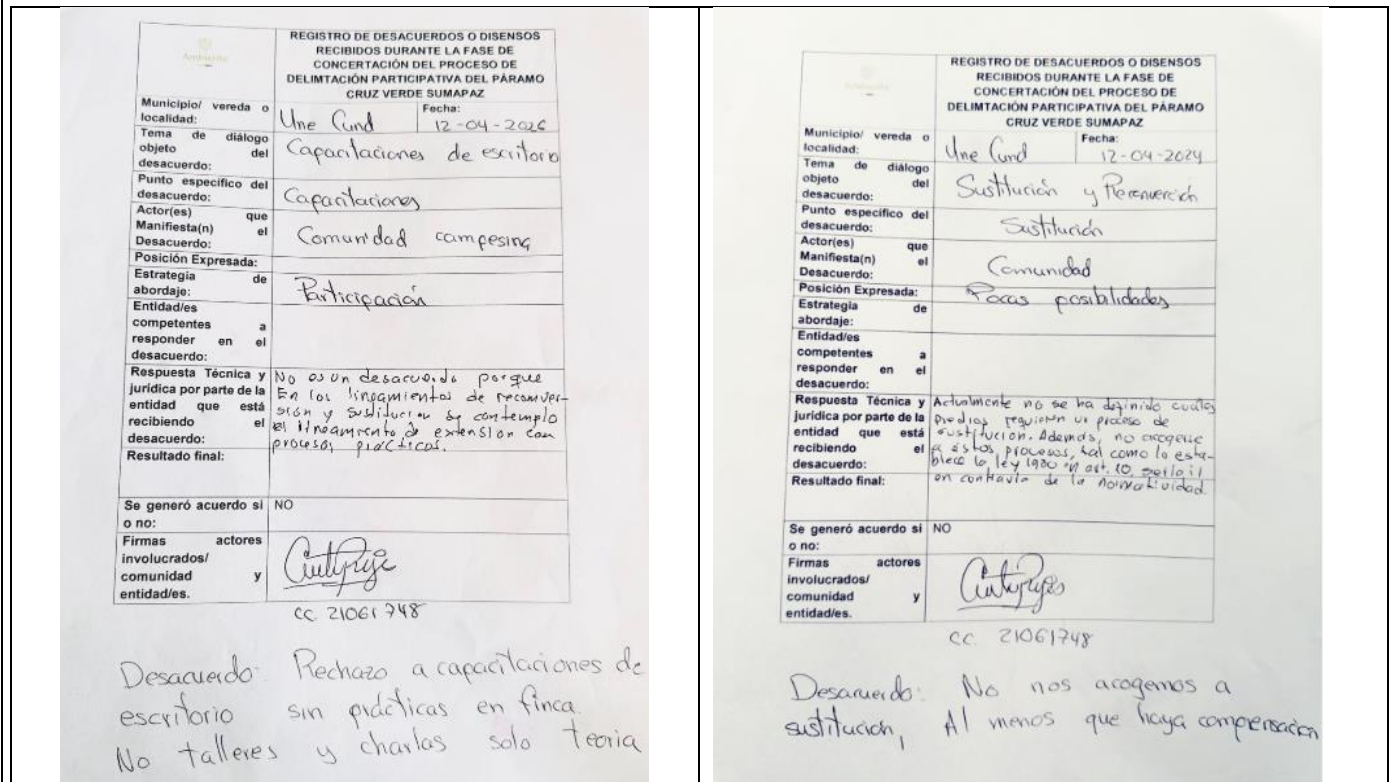 REGISTRO DE DESACUERDOS O DISENSOS
RECIBIDOS DURANTE LA FASE DE
CONCERTACIÓN DEL PROCESO DE
DELIMTACIÓN PARTICIPATIVA DEL PÁRAMO
CRUZ VERDE SUMAPAZ
Municipio/ vereda o
localidad:
Une Cund
Fecha:
12-04-2026
Tema de diálogo
objeto del
desacuerdo:
Capacitaciones de escritorio
Punto específico del
desacuerdo:
Capacitaciones
Actor(es) que
Manifiesta(n) el
Desacuerdo:
Comunidad campesina
Posición Expresada:
Estrategia de
abordaje:
Participación
Entidad/es
competentes a
responder en el
desacuerdo:
Respuesta Técnica y
jurídica por parte de la
entidad que está
recibiendo el
desacuerdo:
No es un desacuerdo porque
En los lineamientos de reconver-
sión y sustitucion se contemplo
el lineamiento de extension con
procesos prácticos.
Resultado final:
Se generó acuerdo si
o no:
NO
Firmas actores
involucrados/
comunidad y
entidad/es.
CC. 21061748
Desacuerdo: Rechazo a capacitaciones de
escritorio sin prácticas en finca.
No talleres y charlas solo teoria
REGISTRO DE DESACUERDOS O DISENSOS
RECIBIDOS DURANTE LA FASE DE
CONCERTACIÓN DEL PROCESO DE
DELIMTACIÓN PARTICIPATIVA DEL PÁRAMO
CRUZ VERDE SUMAPAZ
Municipio/ vereda o
localidad:
Une Cund
Fecha:
12-04-2024
Tema de diálogo
objeto del
desacuerdo:
Sustitución y Reconverción
Punto específico del
desacuerdo:
Sustitución
Actor(es) que
Manifiesta(n) el
Desacuerdo:
Comunidad
Posición Expresada:
Pocas posibilidades
Estrategia de
abordaje:
Entidad/es
competentes a
responder en el
desacuerdo:
Respuesta Técnica y
jurídica por parte de la
entidad que está
recibiendo el
desacuerdo:
Actualmente no se ha definido cuales
predios requieren un proceso de
sustitución. Además, no acogerse
a estos procesos, tal como lo esta-
blece la ley 1930 en art. 10,
en contravía de la normatividad.
Resultado final:
Se generó acuerdo si
o no:
NO
Firmas actores
involucrados/
comunidad y
entidad/es.
CC. 21061748
Desacuerdo: No nos acogemos a
sustitución, Al menos que haya compensacion